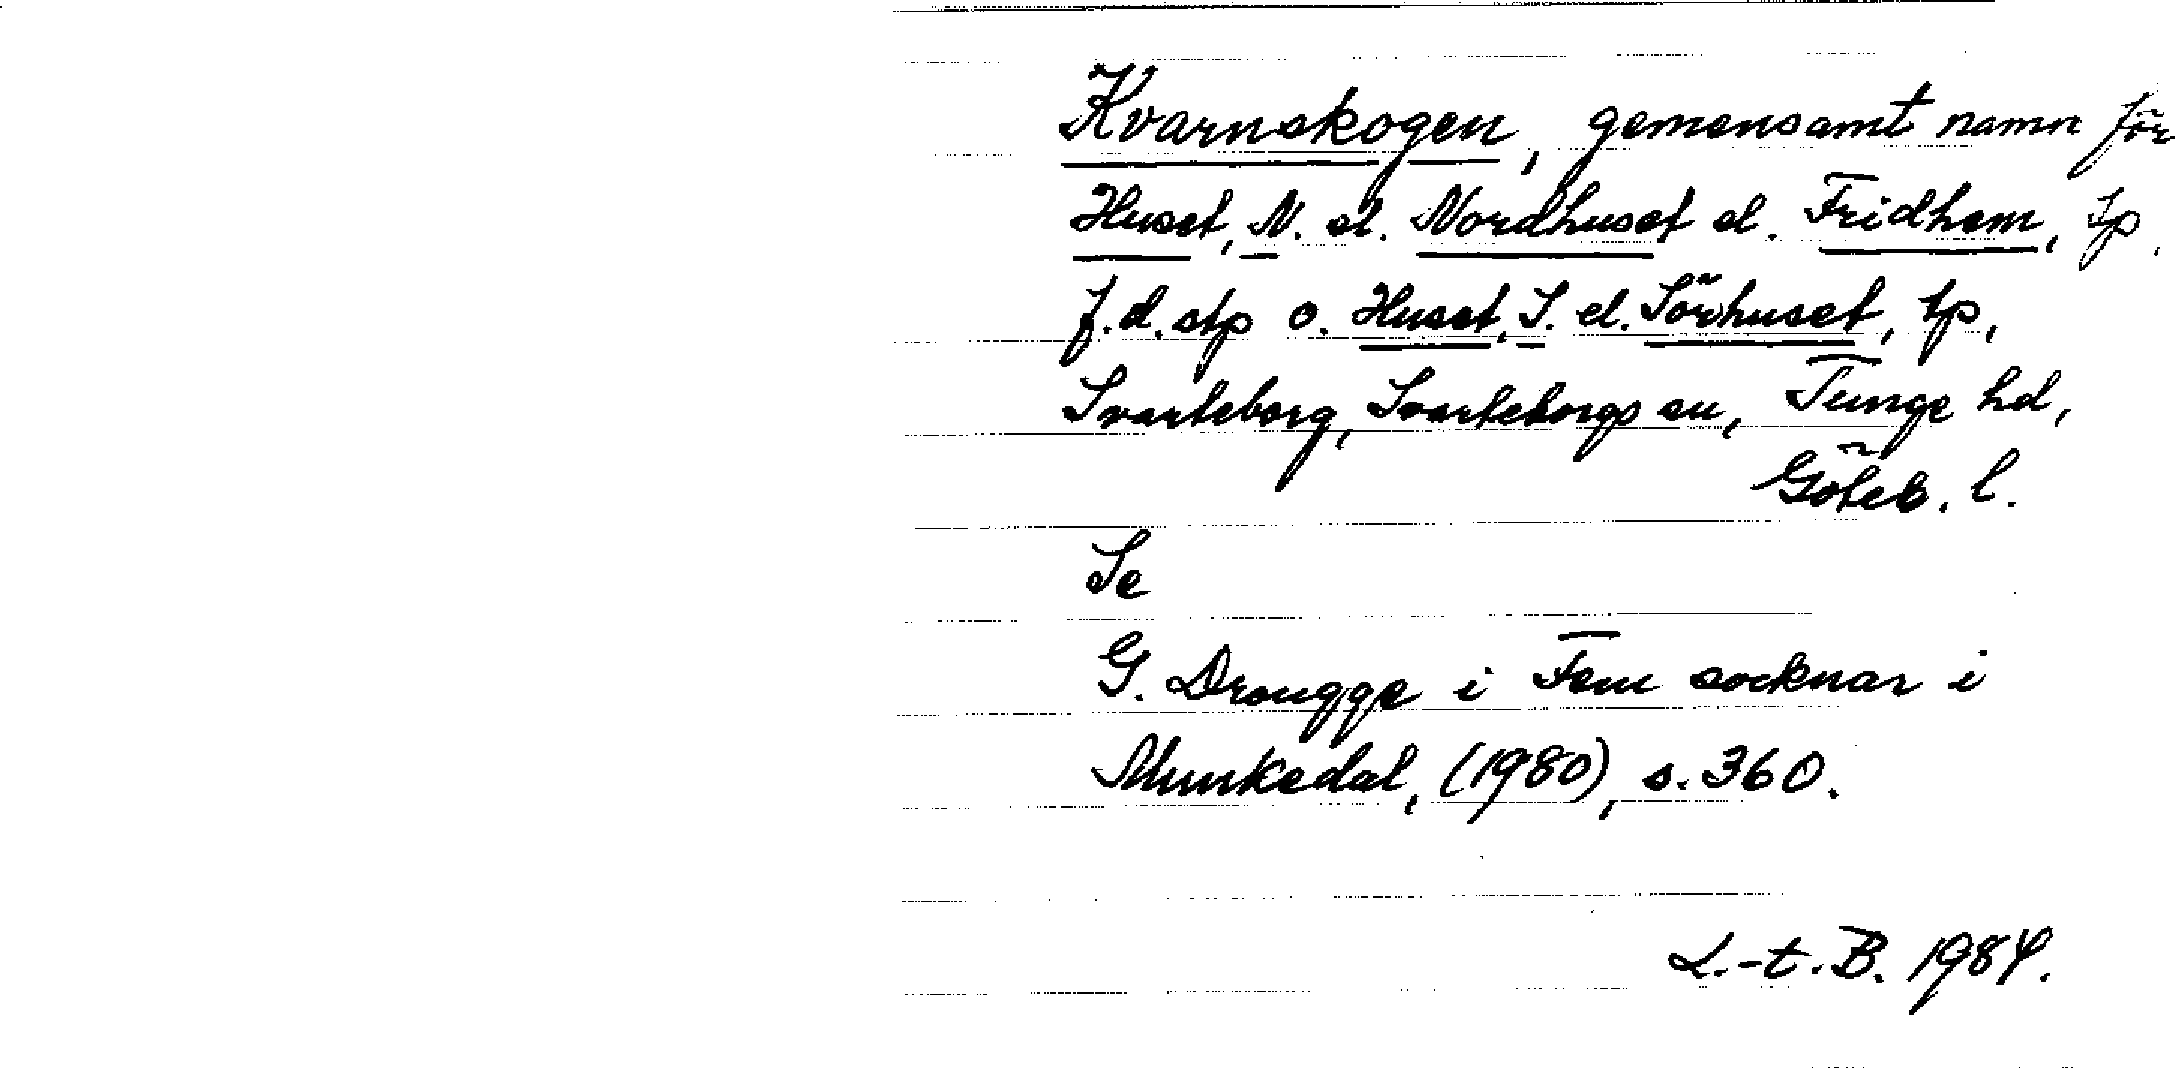 Kvarnskogen, gemensamt namn för
Huset, N. el. Nordhuset el. Fridhem, tp,
f.d. stp o. Huset, S. el. Sörhuset, tp,
Svarteborg, Svarteborgs sn, Tunge hd,
Göteb. l.
Se
G. Drougge i Fem socknar i
Munkedal, (1980), s. 360.
L.-t. B. 1984.